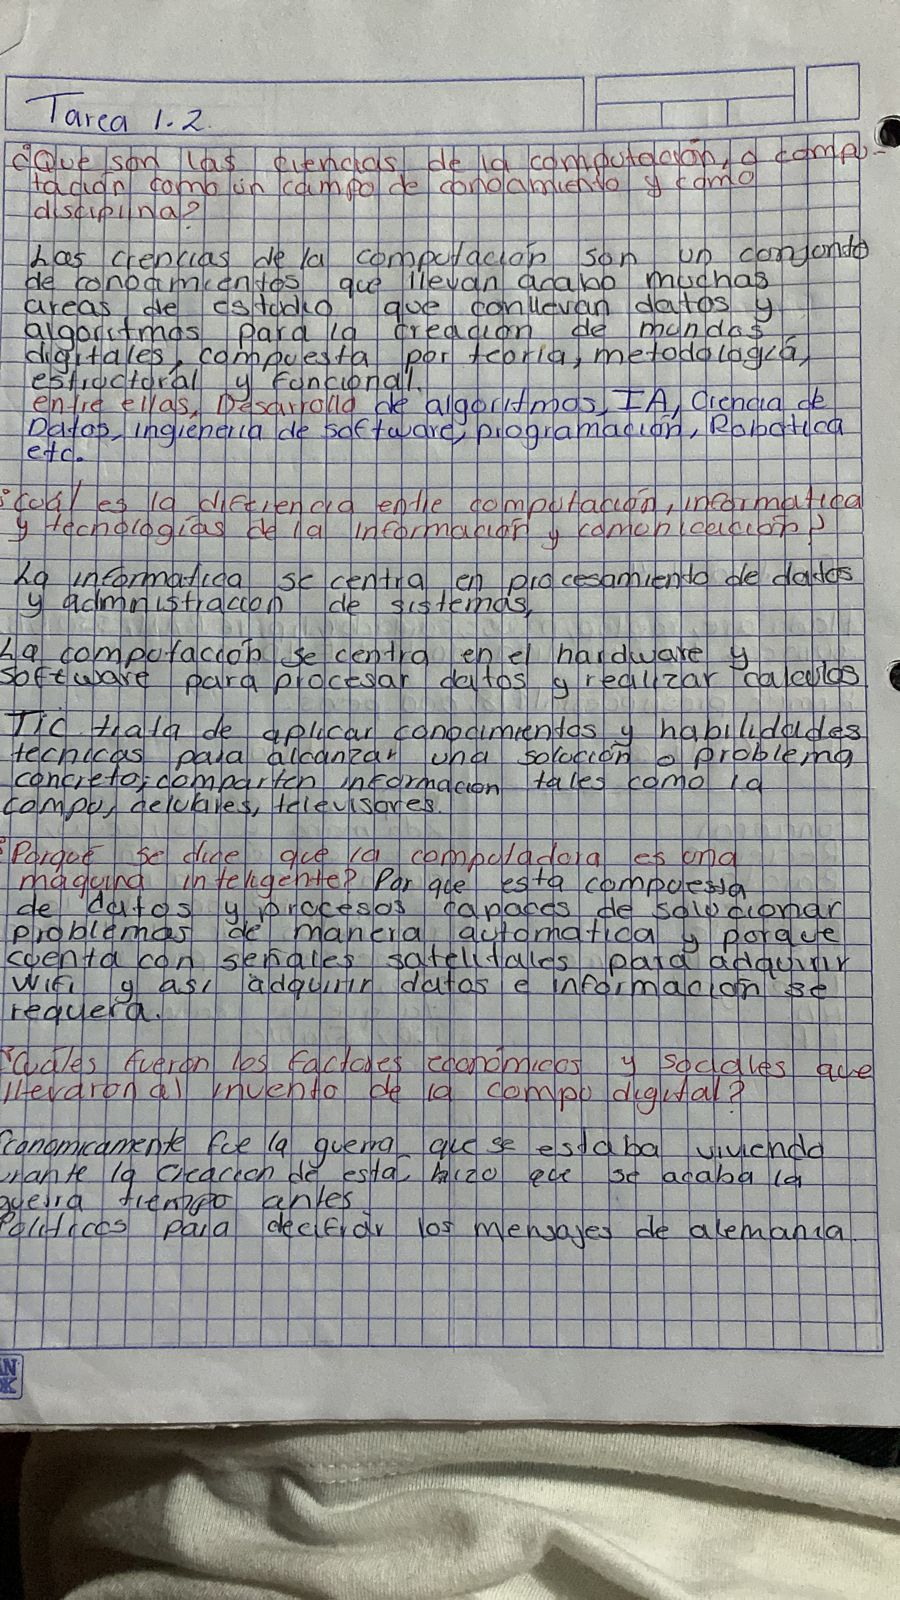 Tarea 1.2.
¿Que son las ciencias de la computación, o compu-
tación como un campo de conocimiento y como
disciplina?
Las ciencias de la computación son un conjunto
de conocimientos que llevan acabo muchas
areas de estudio que conllevan datos y
algoritmos para la creación de mundos
digitales, compuesta por teoria, metodologica,
estructural y funcional.
entre ellas, Desarrollo de algoritmos, IA, Ciencia de
Datos, ingieneria de software, programación, Robotica
etc.
¿Cuál es la diferencia entre computación, informatica
y tecnologias de la información y comunicación?
La informatica se centra en procesamiento de datos
y administracción de sistemas,
La computacción se centra en el hardware y
software para procesar datos y realizar calculos
TIC trata de aplicar conocimientos y habilidades
tecnicas para alcanzar una solución o problema
concreto, comparten información tales como la
compu, celulares, televisores.
¿Porque se dice que la computadora es una
maquina inteligente? Por que esta compuesta
de datos y procesos capaces de solucionar
problemas de manera automatica y porque
cuenta con señales satelitales para adquirir
wifi y asi adquirir datos e información se
requera.
¿Cuáles fueron los factores económicos y sociales que
llevaron al invento de la compu digital?
Economicamente fue la guerra que se estaba viviendo
urante la creación de esta, hizo que se acaba la
guerra tiempo antes
Politicos para decifrar los mensajes de alemania.